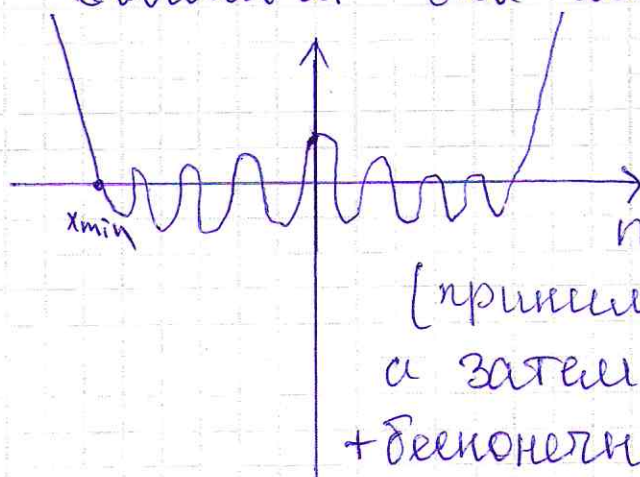 xmin
n
(принил
а затем
+бесконечн